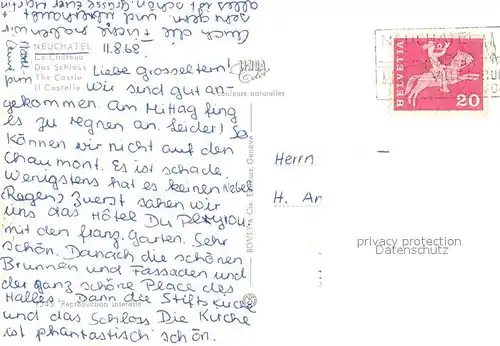 NEUCHATEL
Le Château
Das Schloss
The Castle
Il Castello
11.8.68
Liebe Grosseltern!
Wir sind gut an-
gekommen. Am Mittag fing
es zu regnen an. Leider! So
können wir nicht auf den
Chaumont. Es ist schade.
Wenigstens hat es keinen Nebel
(Regen) Zuerst sahen wir
uns das Hôtel Du Peyrou
mit den franz. Garten. Sehr
schön. Danach die schönen
Brunnen und Fassaden und
der ganz schöne Place des
Halles. Dann die Stiftskirche
und das Schloss Die Kirche
ist phantastisch schön.
Auch die Füsse haben wir
und
alles ist schön Grüsse
couleurs naturelles
BOVETIA Cie, Genève
7345 Reproduction interdite
NEUCHATEL
HELVETIA
20
Herrn
H. Ar
privacy protection
watermarks